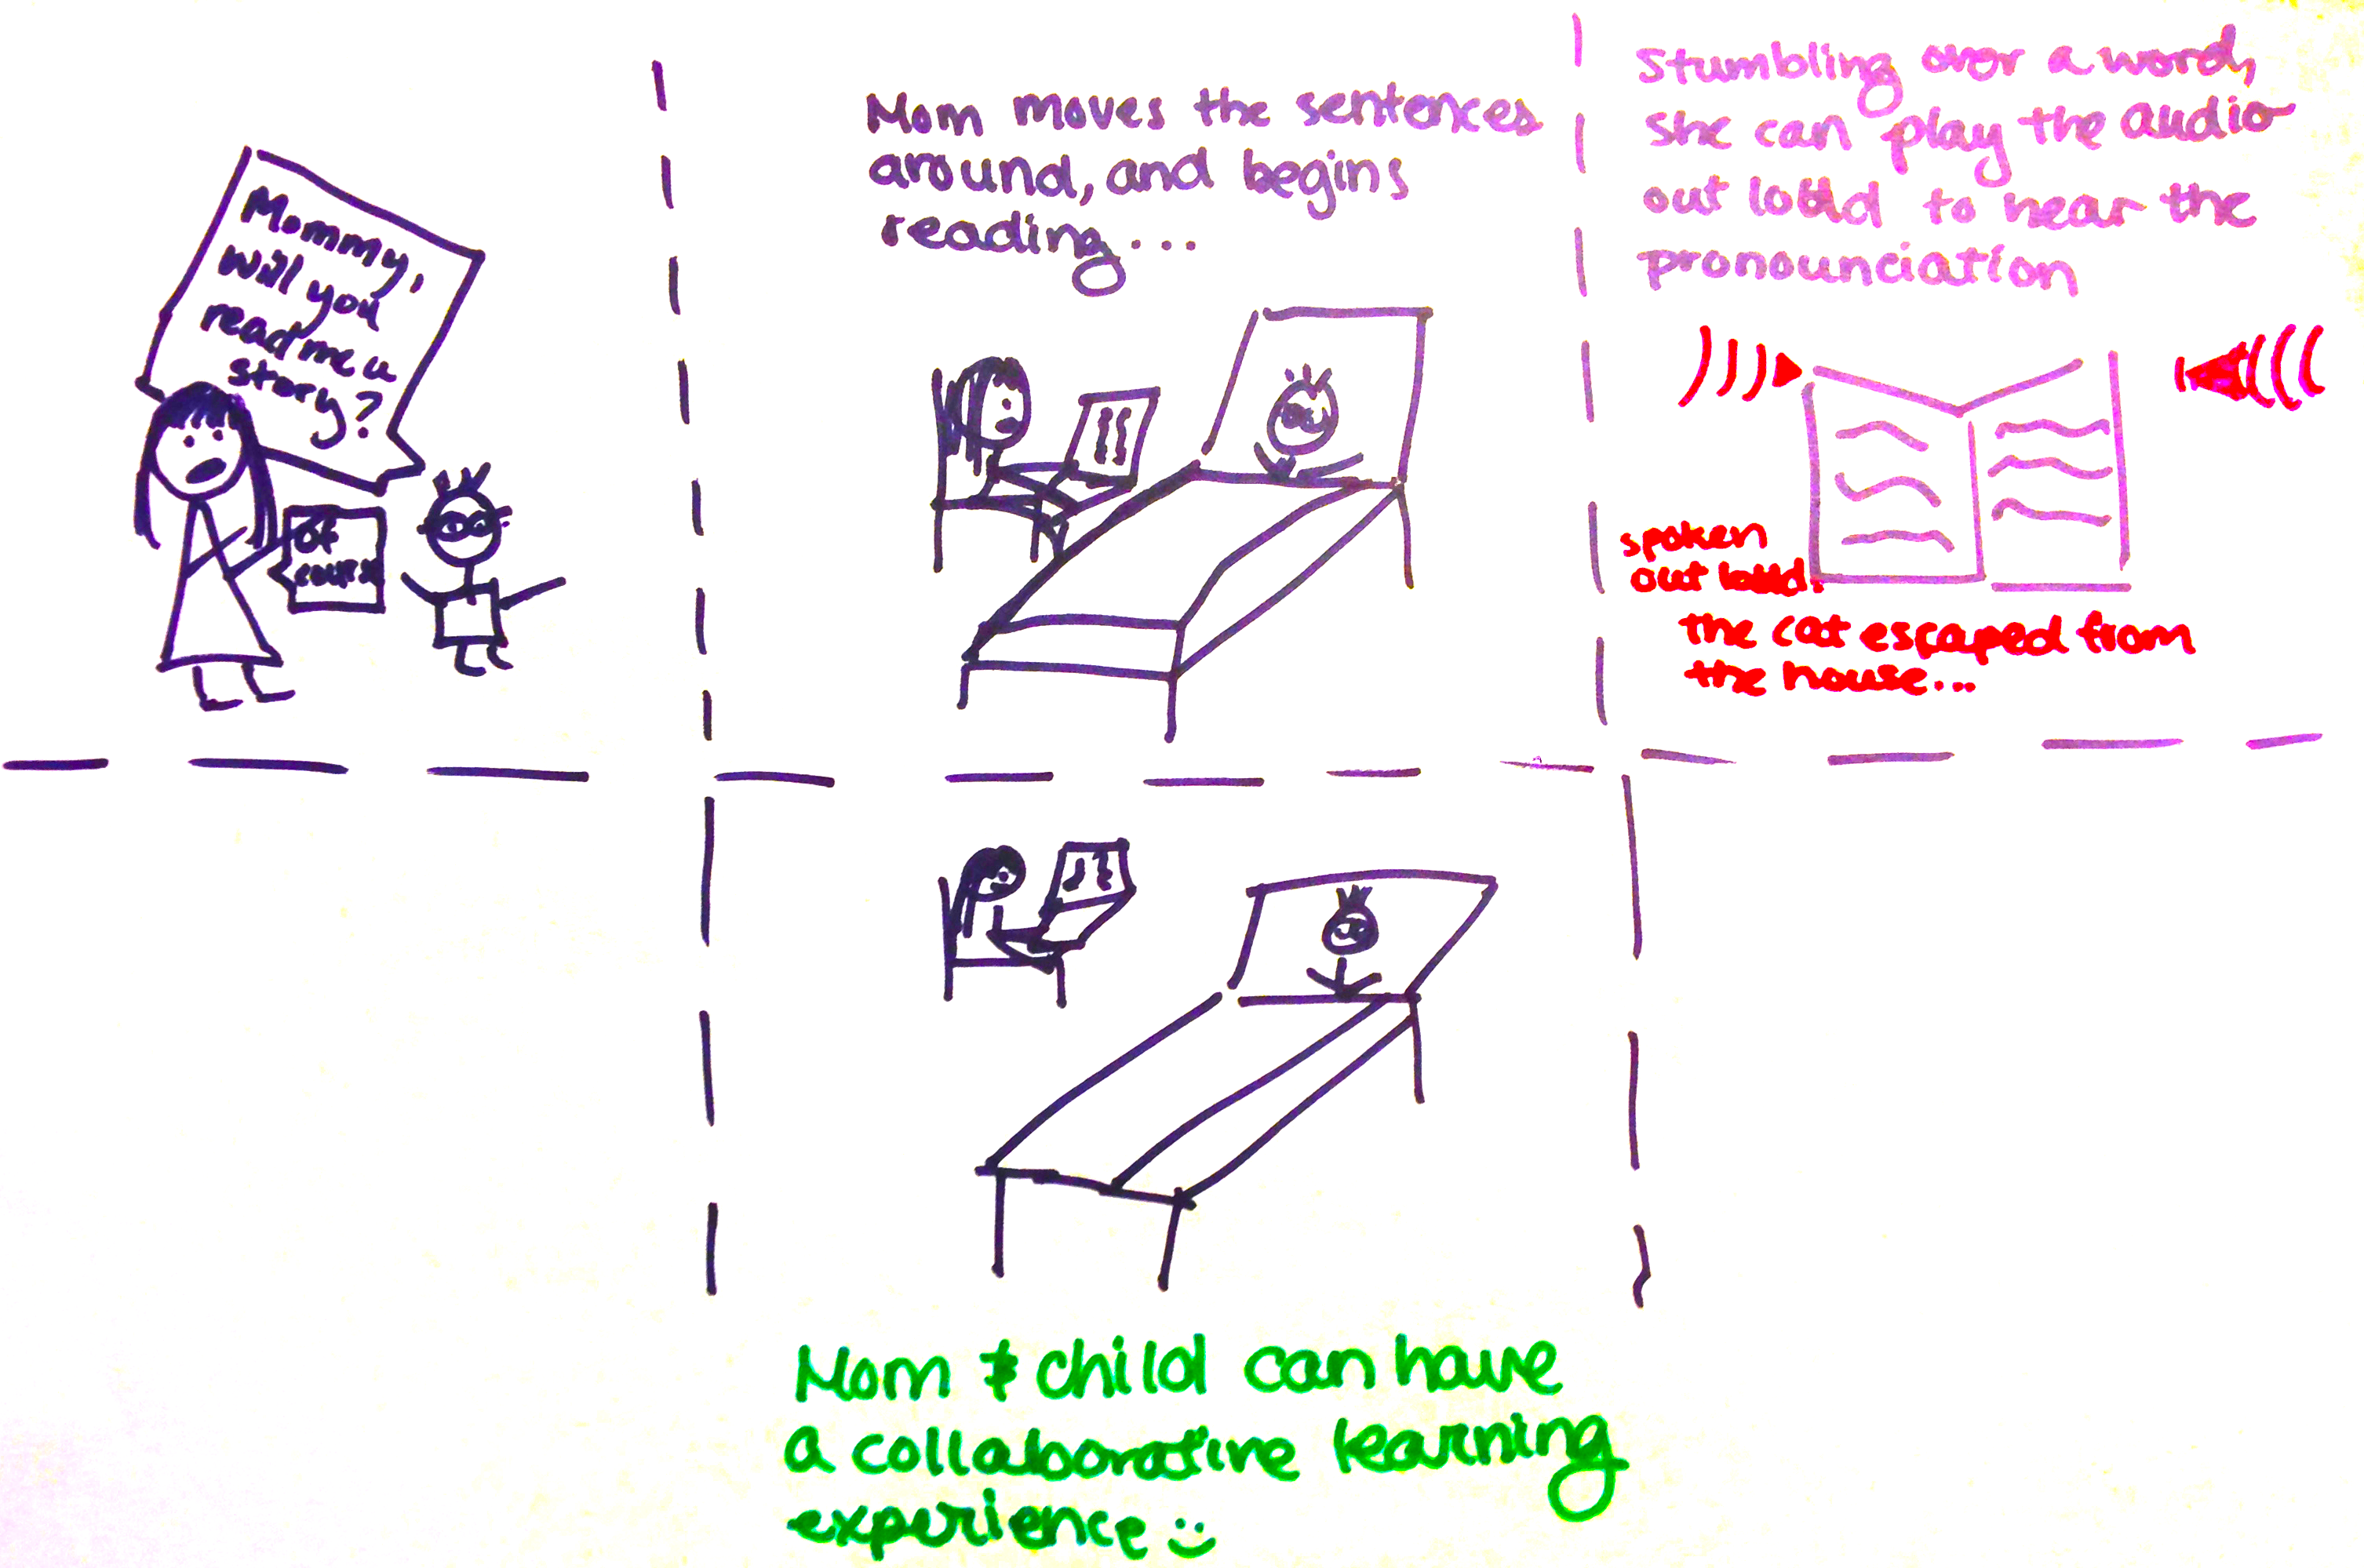 Mommy,
will you
read me a
story?
Of
course
Mom moves the sentences
around, and begins
reading...
Stumbling over a word,
she can play the audio
out loud to hear the
pronounciation
spoken
out loud:
the cat escaped from
the house...
Mom & child can have
a collaborative learning
experience :)